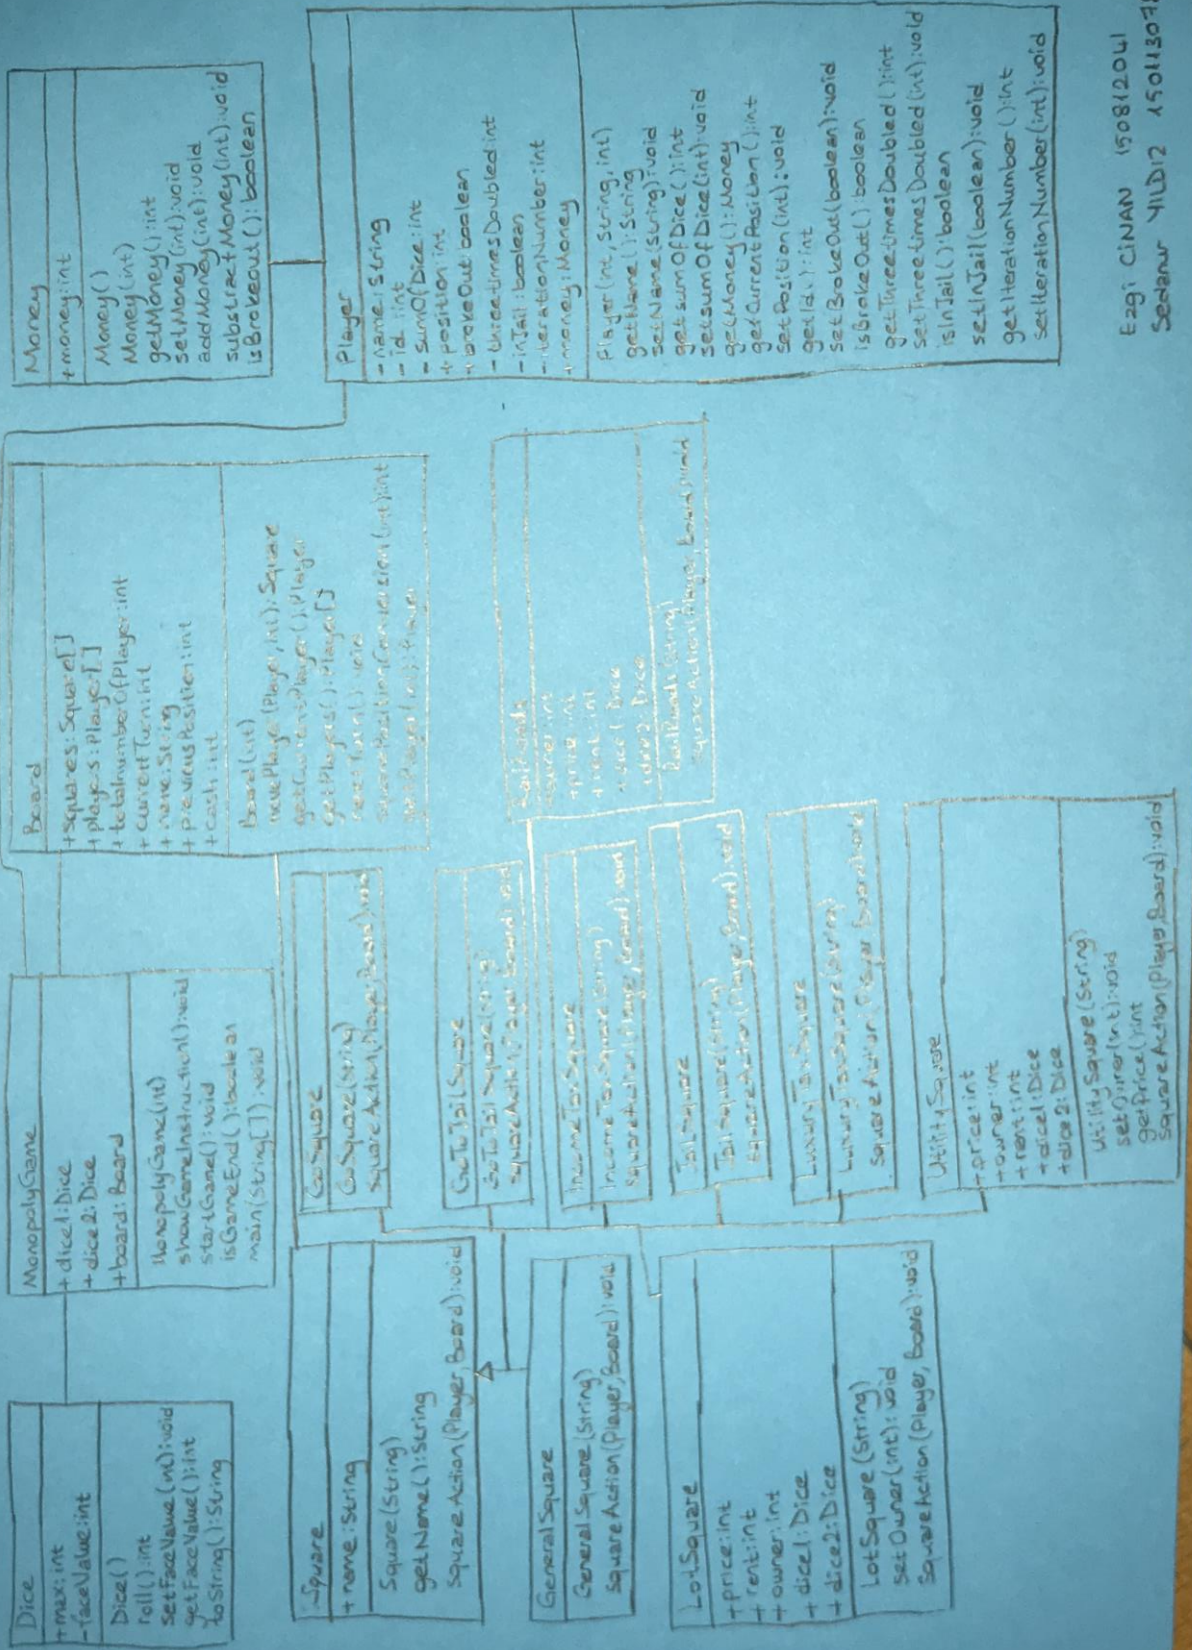 Dice
+max:int
-faceValue:int
Dice()
roll():int
setFaceValue(int):void
getFaceValue():int
toString():String
MonopolyGame
+dice1:Dice
+dice2:Dice
+board:Board
MonopolyGame(int)
showGameInstruction():void
startGame():void
isGameEnd():boolean
main(String[]):void
Board
+squares:Square[]
+players:Player[]
+totalnumberOfPlayer:int
+currentTurn:int
+name:String
+previousPosition:int
+cash:int
board(int)
movePlayer(Player,int):Square
getCurrentPlayer():Player
getPlayers():Player[]
nextTurn():void
squarePositionConversion(int):int
Money
+money:int
Money()
Money(int)
getMoney():int
setMoney(int):void
addMoney(int):void
substractMoney(int):void
isBrokeout():boolean
Player
-name:String
-id:int
-sumOfDice:int
+position:int
+brokeOut:boolean
-threetimesDoubled:int
-inJail:boolean
-iterationNumber:int
+money:Money
Player(int,String,int)
getName():String
setName(String):void
getsumOfDice():int
setsumOfDice(int):void
getMoney():Money
getCurrentPosition():int
setPosition(int):void
getId():int
setBrokeOut(boolean):void
isBrokeOut():boolean
getThreetimesDoubled():int
setThreetimesDoubled(int):void
isInJail():boolean
setInJail(boolean):void
getIterationNumber():int
setIterationNumber(int):void
Square
+name:String
Square(String)
getName():String
SquareAction(Player,Board):void
GoSquare
GoSquare(String)
SquareAction(Player,Board):void
GoToJailSquare
GoToJailSquare(String)
squareAction(Player,Board):void
IncomeTaxSquare
IncomeTaxSquare(String)
SquareAction(Player,Board):void
JailSquare
JailSquare(String)
SquareAction(Player,Board):void
LuxuryTaxSquare
LuxuryTaxSquare(String)
SquareAction(Player,Board):void
UtilitySquare
+price:int
+owner:int
+rent:int
+dice1:Dice
+dice2:Dice
UtilitySquare(String)
setOwner(int):void
getPrice():int
squareAction(Player,Board):void
+owner:int
+price:int
+rent:int
+dice1:Dice
+dice2:Dice
SquareAction(Player,Board):void
GeneralSquare
GeneralSquare(String)
SquareAction(Player,Board):void
LotSquare
+price:int
+rent:int
+owner:int
+dice1:Dice
+dice2:Dice
LotSquare(String)
setOwner(int):void
SquareAction(Player,Board):void
Ezgi CİNAN 150812041
Sedanur YILDIZ